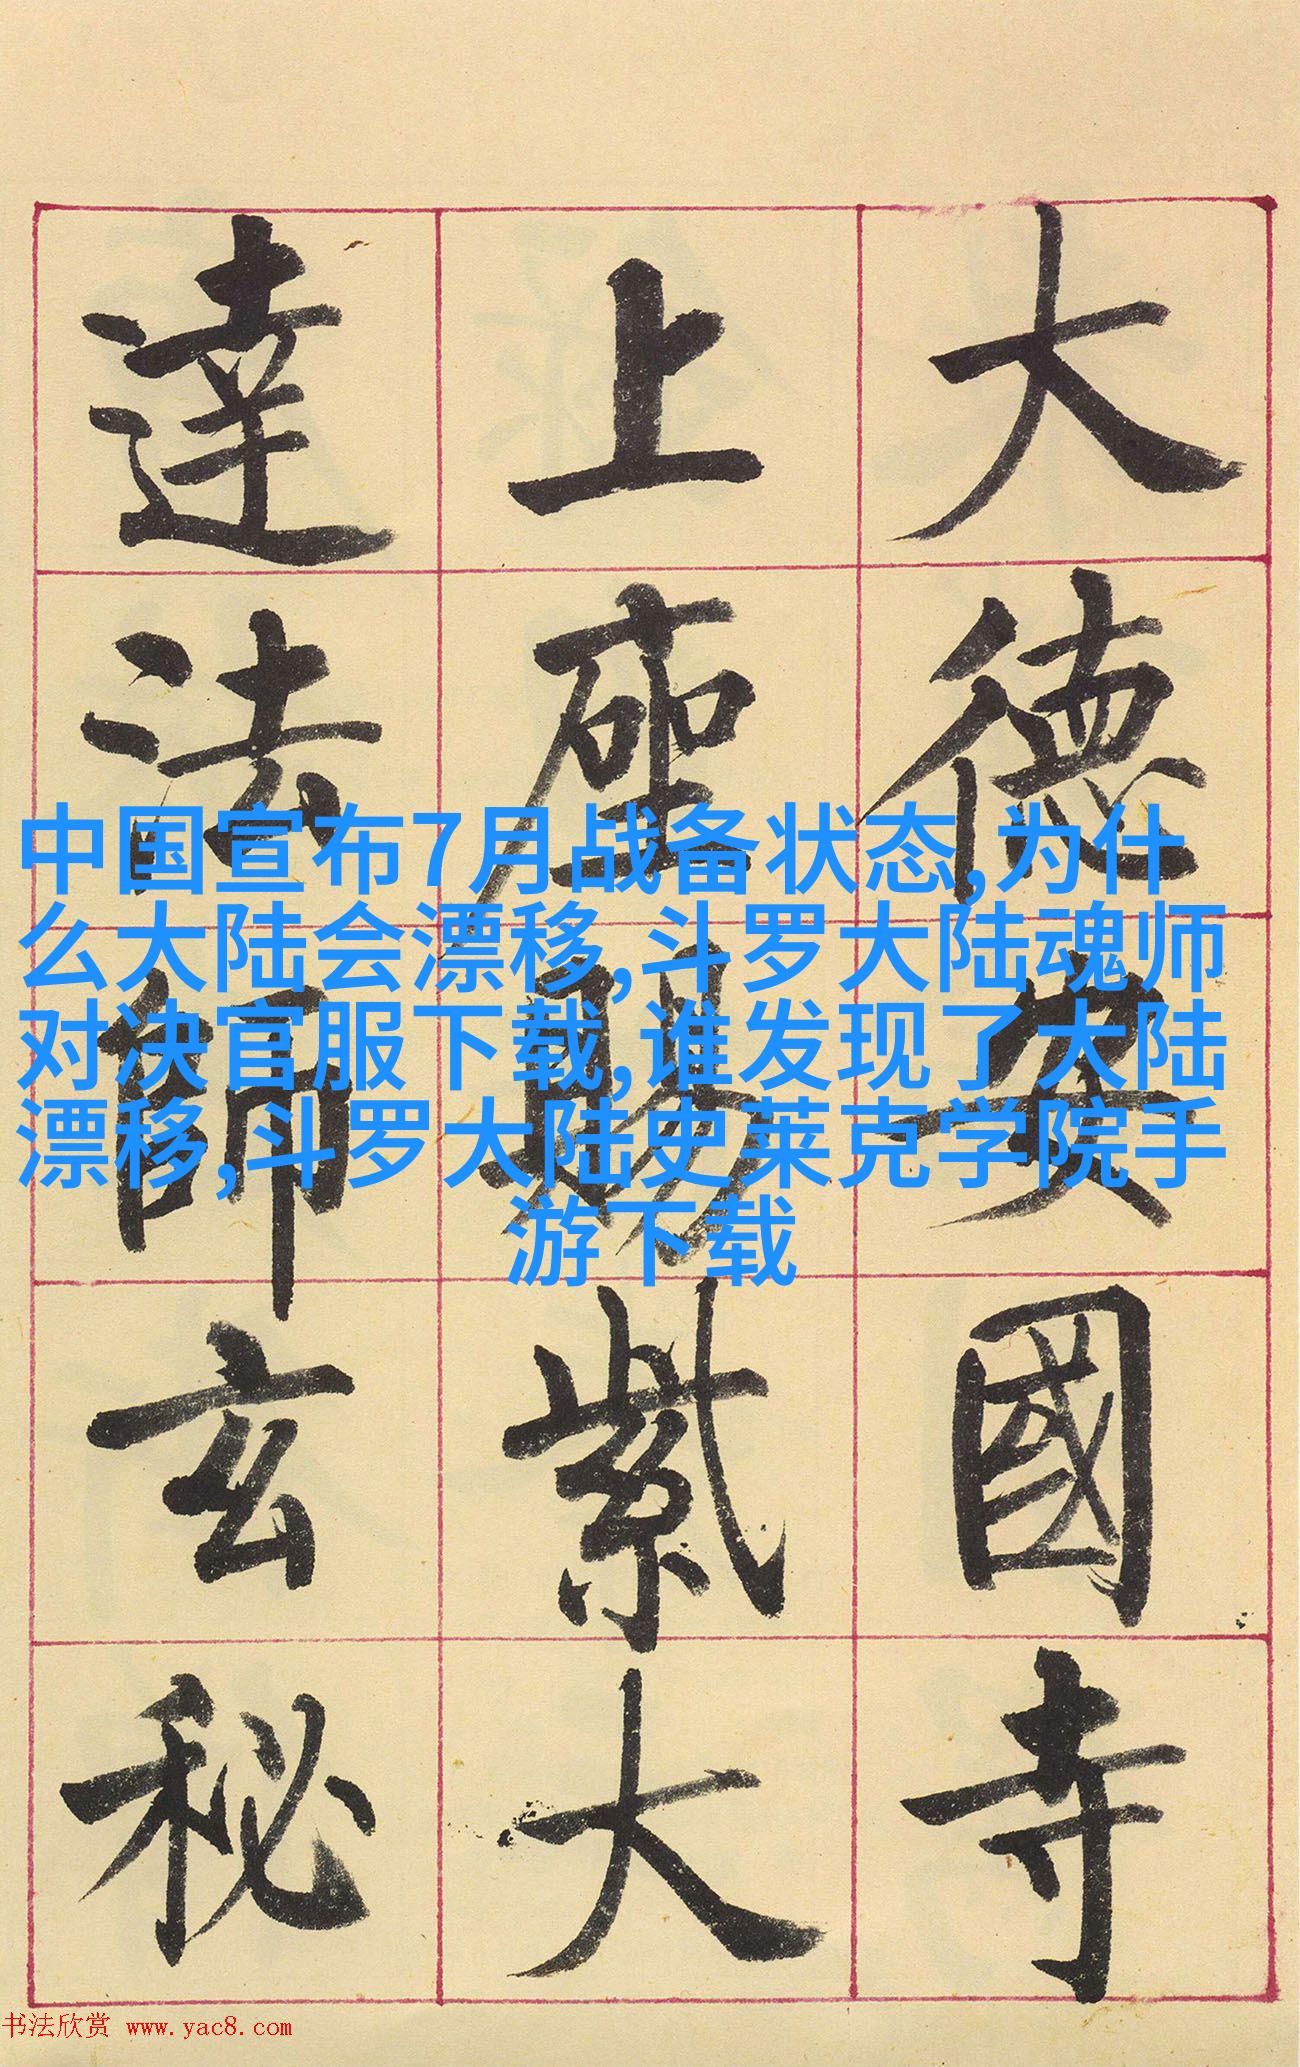 大德安國寺
上座賜紫大
達法師玄秘
中国宣布7月战备状态,为什
么大陆会漂移,斗罗大陆魂师
对决官服下载,谁发现了大陆
漂移,斗罗大陆史莱克学院手
游下载
书法欣赏 www.yac8.com